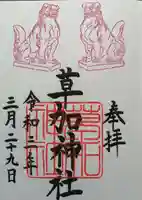 奉拝
草加神社
令和二年
三月二十九日